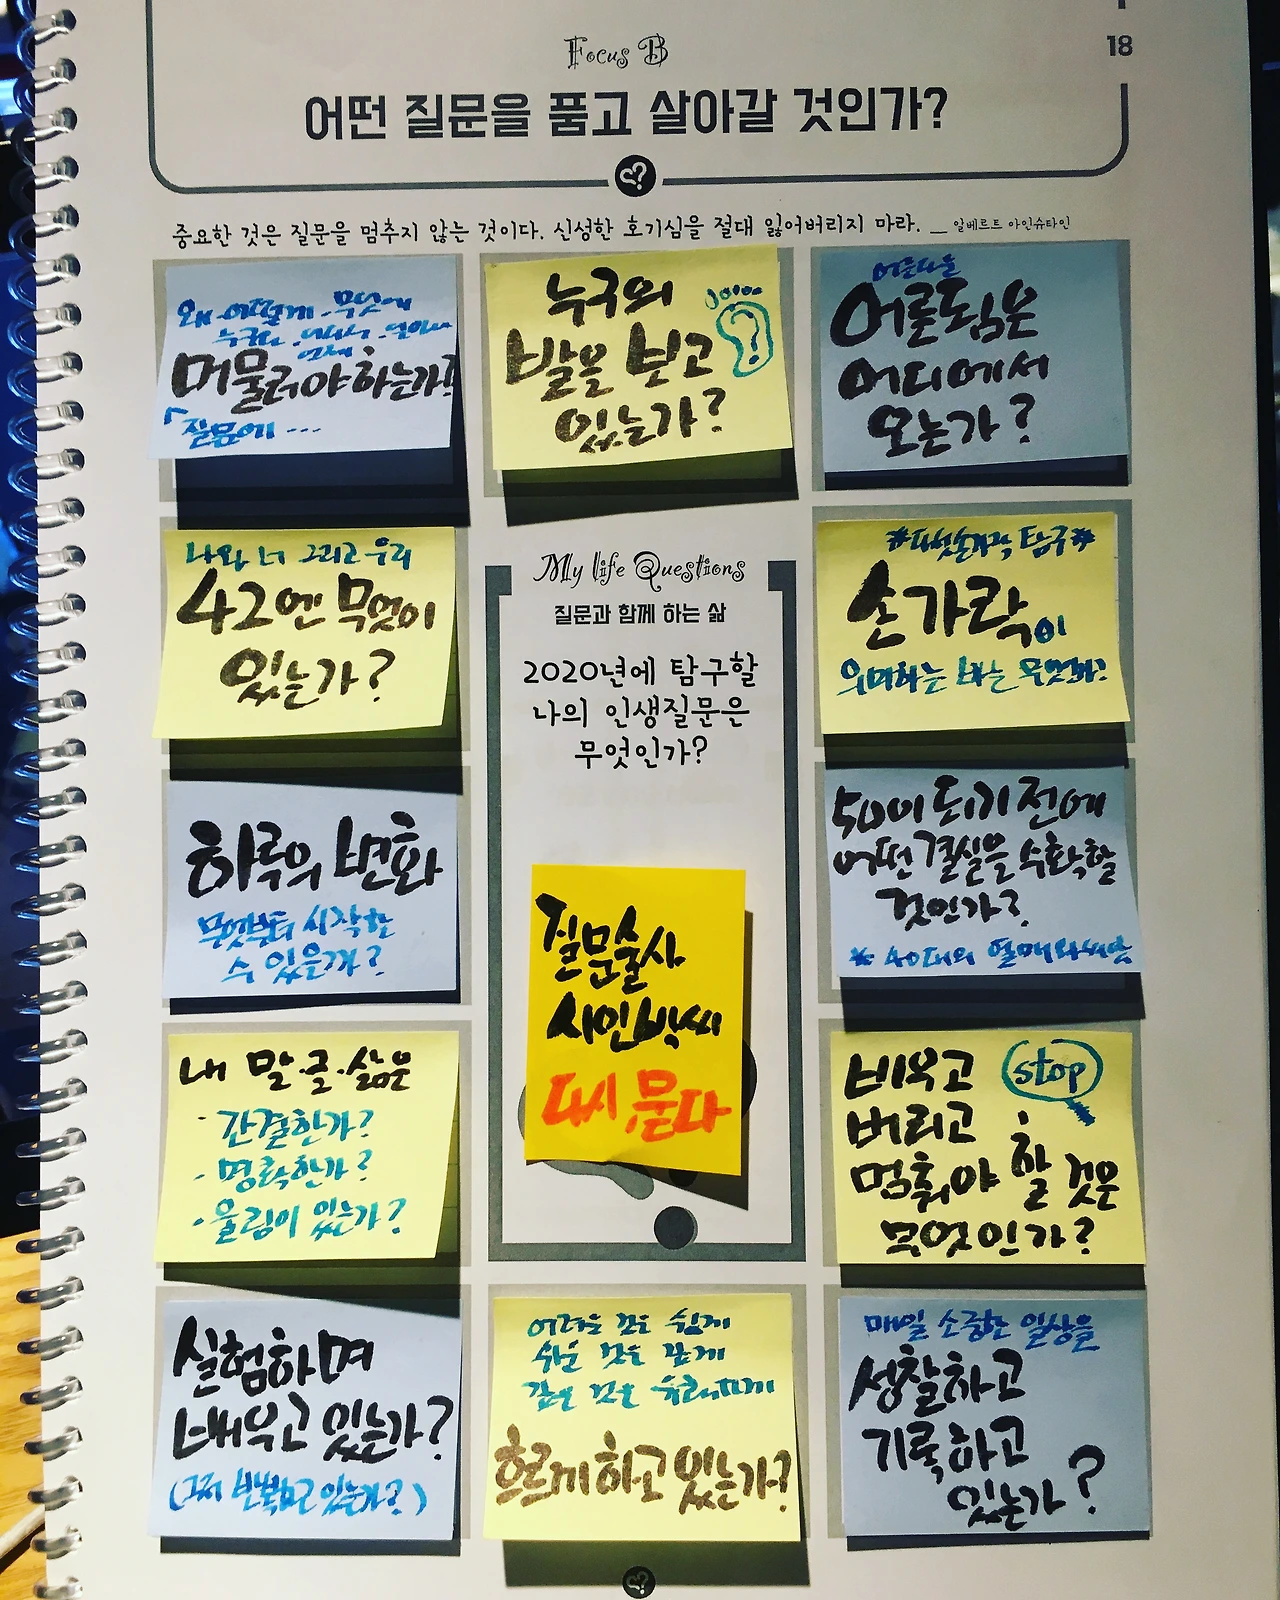 Focus B
18
어떤 질문을 품고 살아갈 것인가?
중요한 것은 질문을 멈추지 않는 것이다. 신성한 호기심을 절대 잃어버리지 마라. _ 알베르트 아인슈타인
왜·어떻게·무엇에
머물러야하는가?
「질문에 ...
누구의
발을 보고
있는가?
어른다움
어른됨은
어디에서
오는가?
나와 너 그리고 우리
42엔 무엇이
있는가?
My life Questions
질문과 함께 하는 삶
2020년에 탐구할
나의 인생질문은
무엇인가?
질문술사
시인박씨
다시 묻다
#다섯손가락 탐구#
손가락이
의미하는 바는 무엇인가?
하루의 변화
무엇부터 시작할
수 있을까?
50이 되기 전에
어떤 결실을 수확할
것인가?
# 40대의 열매와씨앗
내 말·글·삶은
· 간결한가?
· 명확한가?
· 울림이 있는가?
비우고
stop
버리고
멈춰야 할 것은
무엇인가?
실험하며
배우고 있는가?
(그저 반복하고 있는가?)
어려운 것은 쉽게
쉬운 것은 깊게
깊은 것은 유쾌하게
흐르게하고있는가?
매일 소중한 일상을
성찰하고
기록하고
있는가?